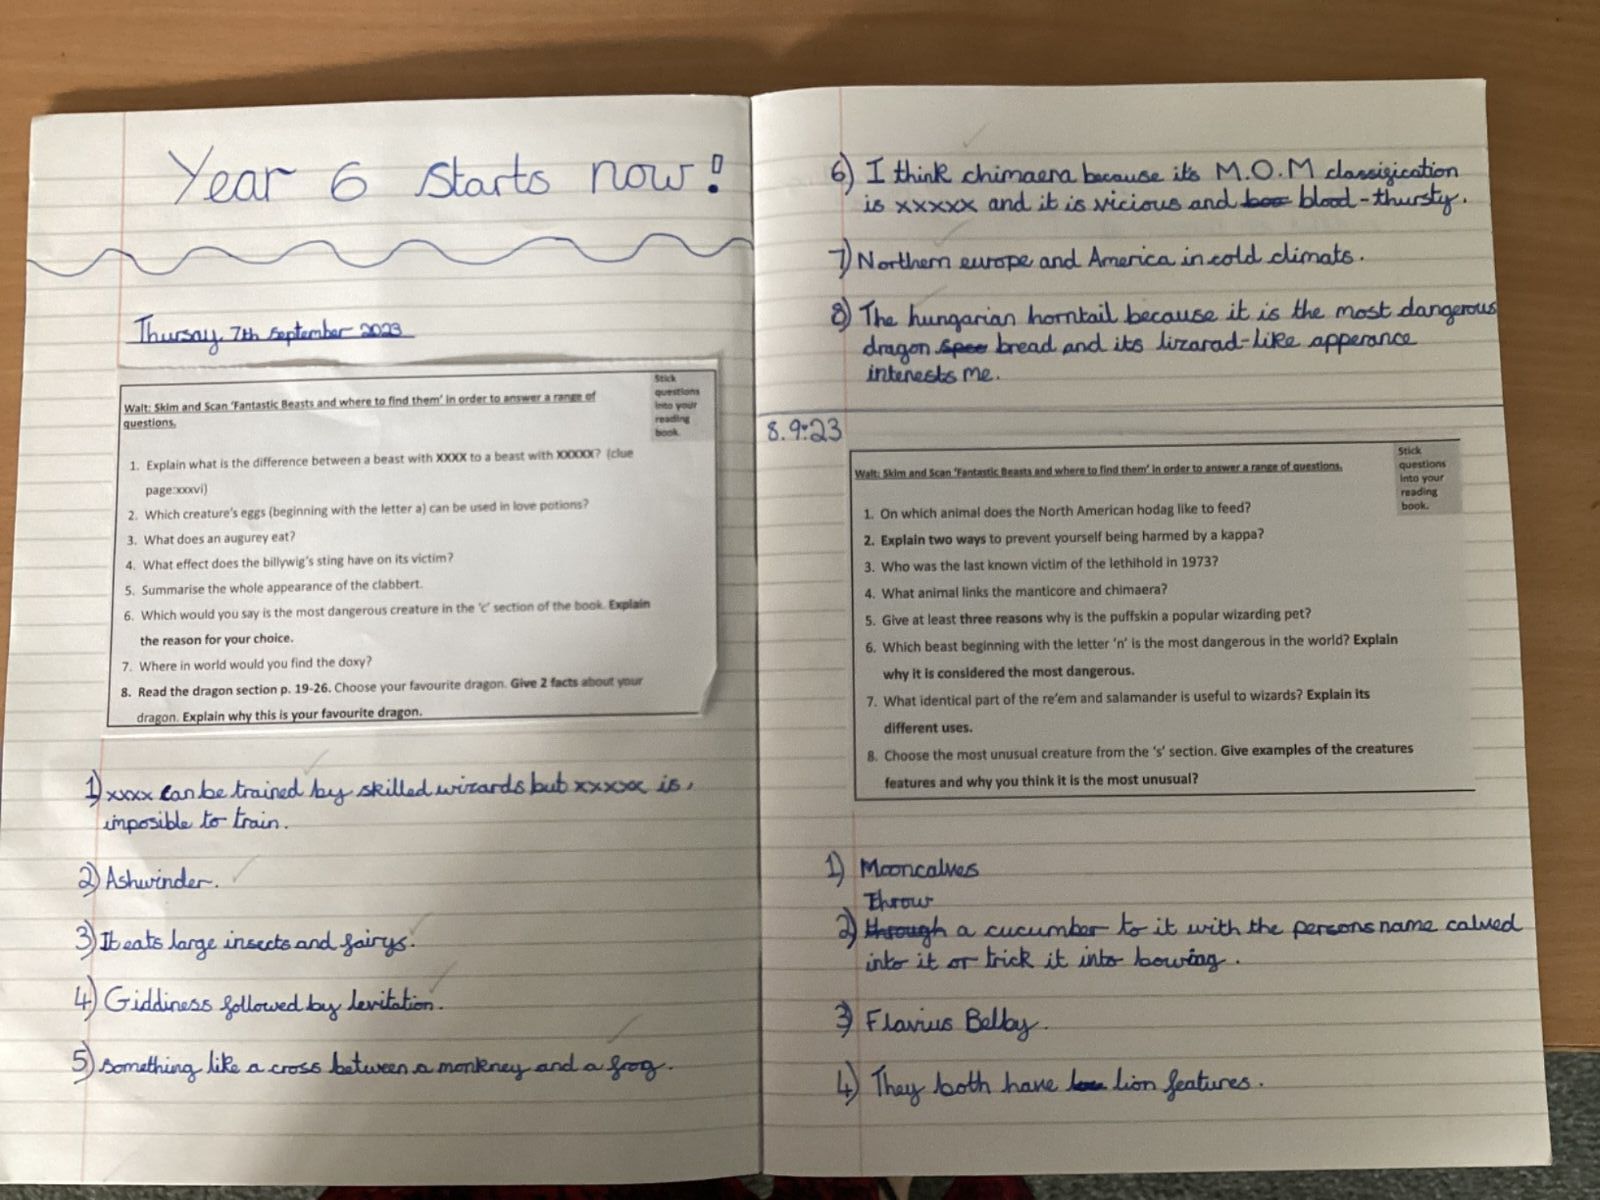 Year 6 starts now!
Thursay 7th september 2023
Walt: Skim and Scan 'Fantastic Beasts and where to find them' in order to answer a range of
questions.
Stick
questions
into your
reading
book.
1. Explain what is the difference between a beast with XXXX to a beast with XXXXX? (clue
page:xxxvi)
2. Which creature's eggs (beginning with the letter a) can be used in love potions?
3. What does an augurey eat?
4. What effect does the billywig's sting have on its victim?
5. Summarise the whole appearance of the clabbert.
6. Which would you say is the most dangerous creature in the 'c' section of the book. Explain
the reason for your choice.
7. Where in world would you find the doxy?
8. Read the dragon section p. 19-26. Choose your favourite dragon. Give 2 facts about your
dragon. Explain why this is your favourite dragon.
1) xxxx can be trained by skilled wizards but xxxxx is,
imposible to train.
2) Ashwinder.
3) It eats large insects and fairys.
4) Giddiness followed by levitation.
5) something like a cross between a monkney and a frog.
6) I think chimaera because its M.O.M classigication
is xxxxx and it is vicious and boo blood-thursty.
7) Northern europe and America in cold climats.
8) The hungarian horntail because it is the most dangerous
dragon spee bread and its lizarad-like apperance
interests me.
8.9.23
Walt: Skim and Scan 'Fantastic Beasts and where to find them' in order to answer a range of questions.
Stick
questions
into your
reading
book.
1. On which animal does the North American hodag like to feed?
2. Explain two ways to prevent yourself being harmed by a kappa?
3. Who was the last known victim of the lethihold in 1973?
4. What animal links the manticore and chimaera?
5. Give at least three reasons why is the puffskin a popular wizarding pet?
6. Which beast beginning with the letter 'n' is the most dangerous in the world? Explain
why it is considered the most dangerous.
7. What identical part of the re'em and salamander is useful to wizards? Explain its
different uses.
8. Choose the most unusual creature from the 's' section. Give examples of the creatures
features and why you think it is the most unusual?
1) Mooncalves
Throw
2) through a cucumber to it with the persons name calved
into it or trick it into bowing.
3) Flavius Belby.
4) They both have lion features.